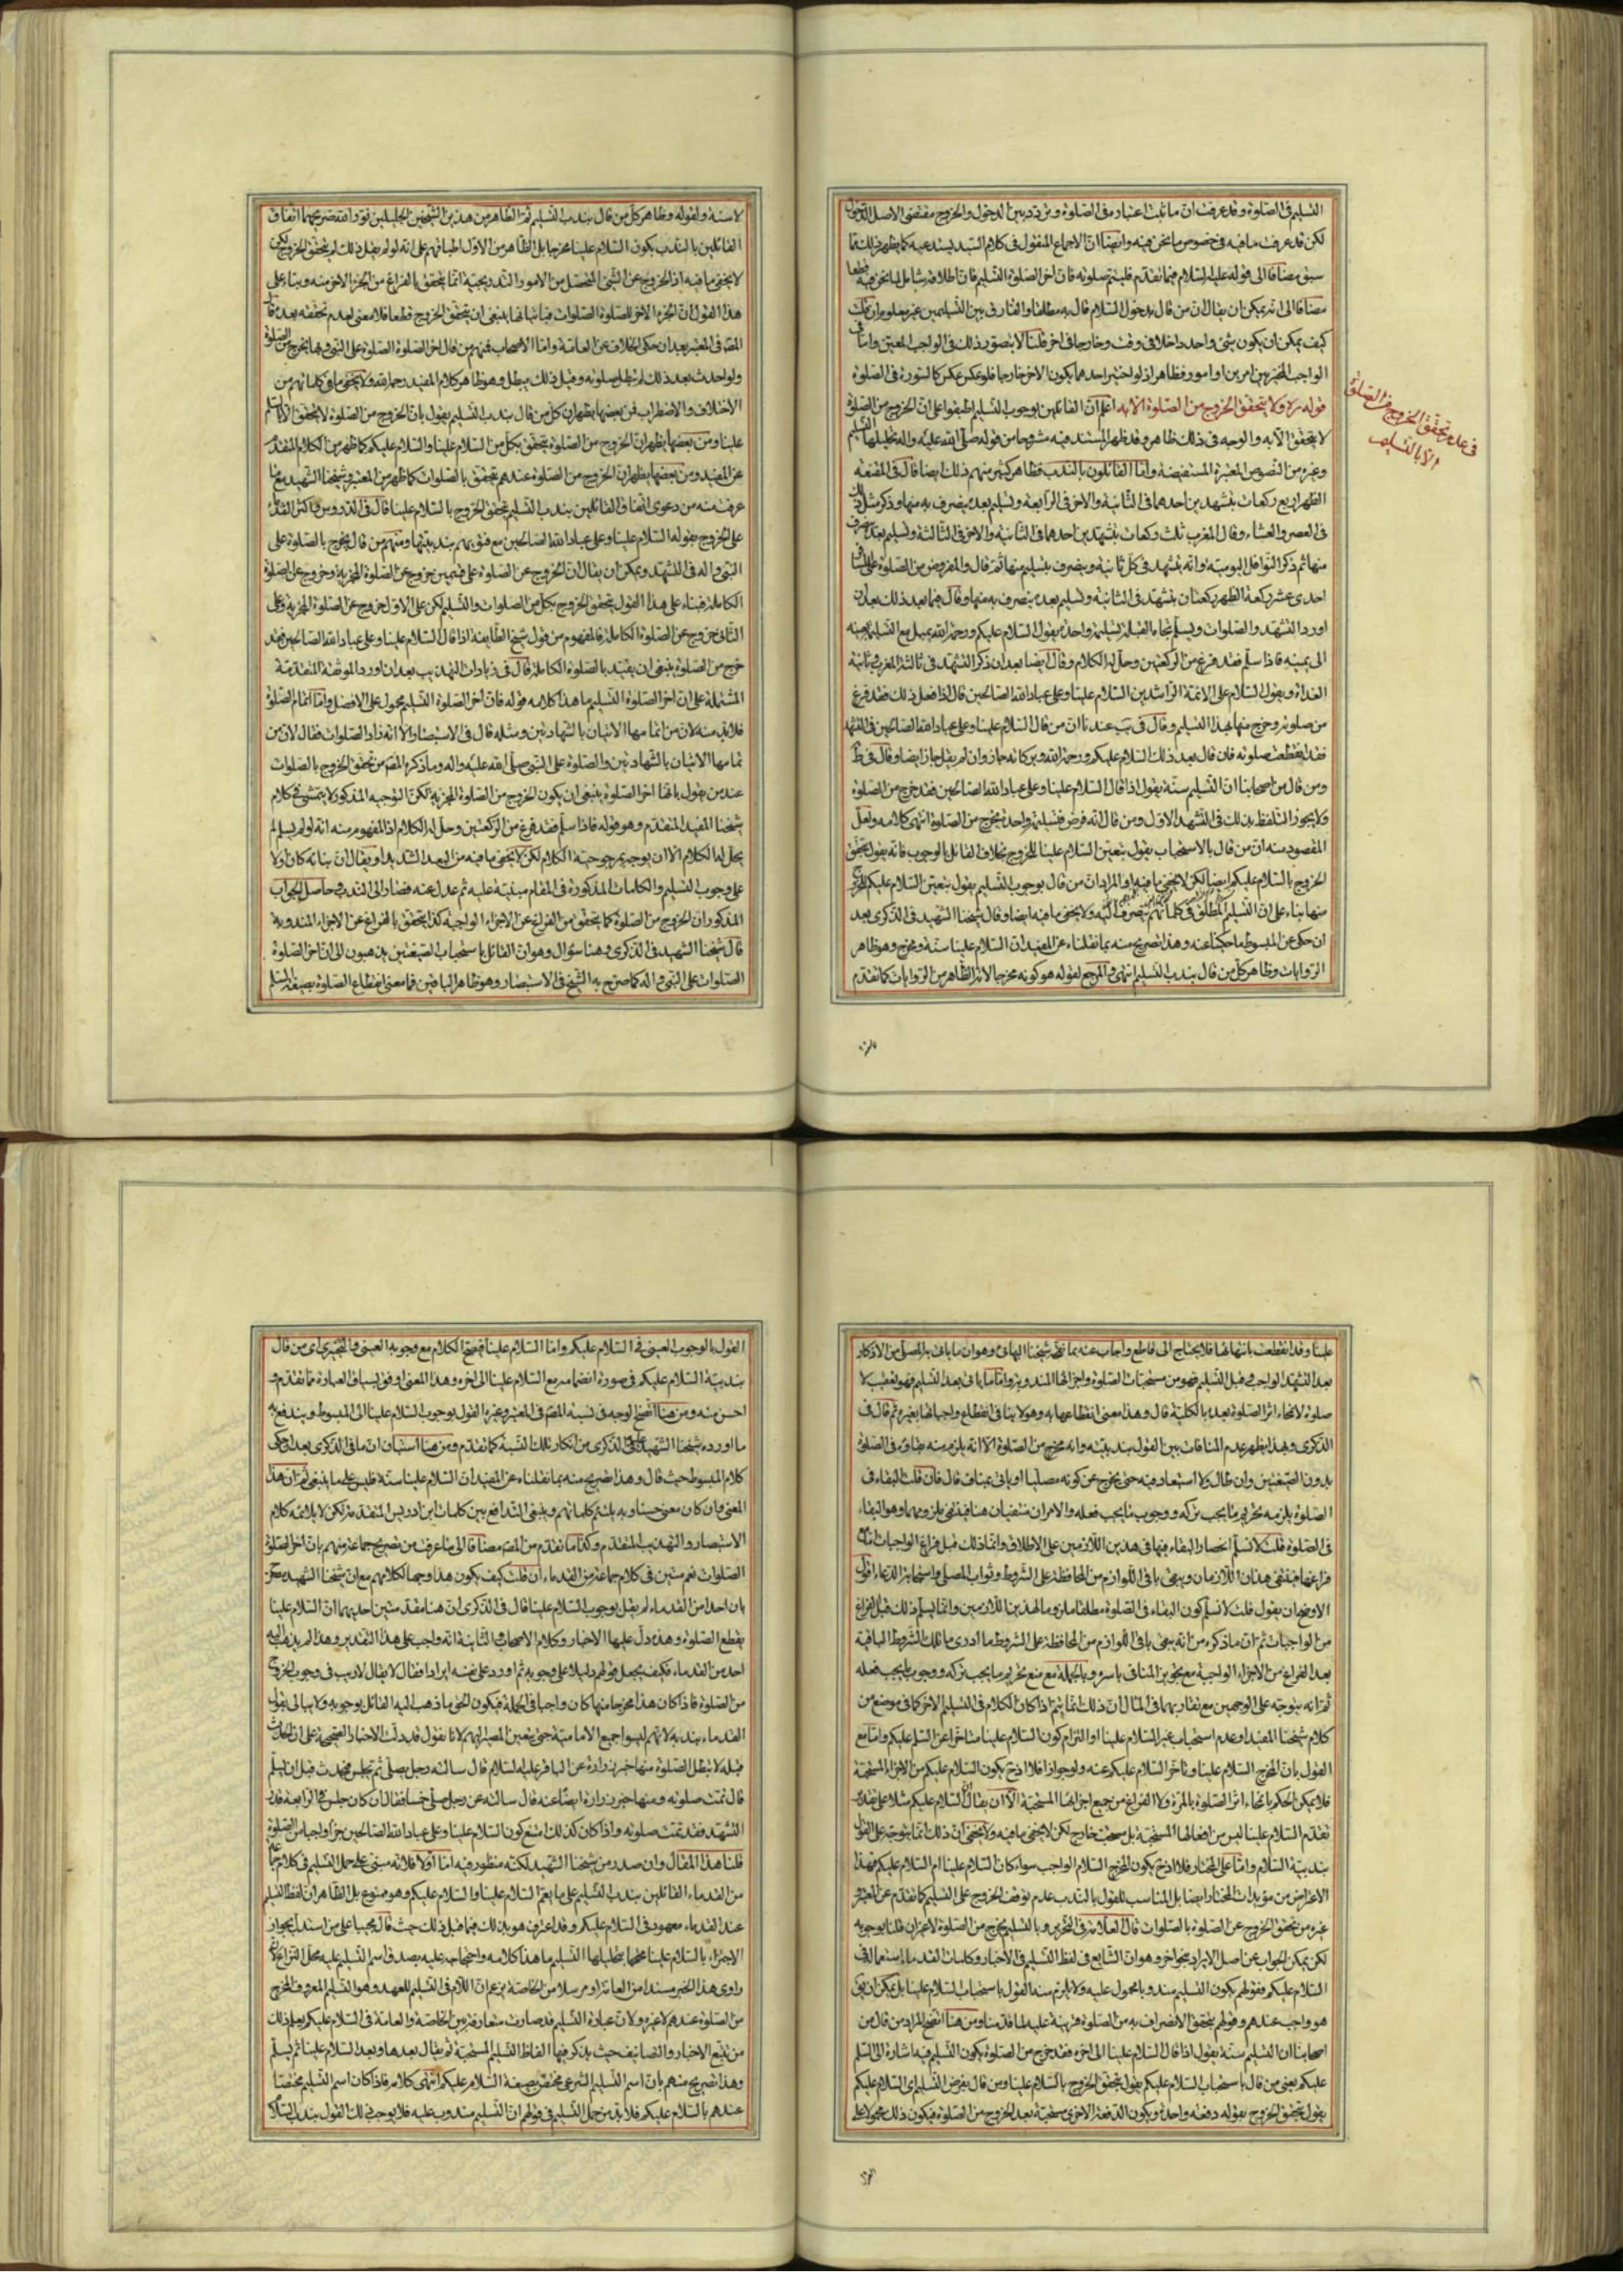 التسليم فى الصلوة وقد عرفت ان ما ثبت اعتباره فى الصلوة وتردد بين الدخول والخروج مقتضى الاصل الدخول
لكن قد عرفت ما فيه فى خصوص ما نحن فيه وايضا ان الاجماع المنقول فى كلام السيد يستدعيه كما يظهر ذلك مما
سبق مضافا الى قوله عليه السلام فيما تقدم فليتم صلوته فان اخر الصلوة التسليم فان اطلاقه شامل لما نحن فيه قطعا
مضافا الى انه يمكن ان يقال ان من قال بدخول السلام قال به مطلقا والفارق بين التسليمين غير معلوم ان قلت
كيف يمكن ان يكون شئ واحد داخلا فى وقت وخارجا فى اخر قلنا لا يتصور ذلك فى الواجب المعين واما فى
الواجب المخير بين امرين او امور فظاهر اذ لو اختير احدهما يكون الاخر خارجا فلو عكس عكس كالسورة فى الصلوة
قوله ره ولا يتحقق الخروج من الصلوة الا به اعلم ان القائلين بوجوب التسليم اطبقوا على ان الخروج من الصلوة
لا يتحقق الا به والوجه فى ذلك ظاهر وقد ظهر المستند فيه مشروحا من قوله صلى الله عليه واله تحليلها التسليم
وغيره من النصوص المعتبرة المستفيضة واما القائلون بالندب فظاهر كثير منهم ذلك ايضا قال فى المقنعة
الظهر اربع ركعات بتشهدين احدهما فى الثانية والاخر فى الرابعة وتسليم بعده ينصرف به منها وذكر مثل ذلك
فى العصر والعشاء وقال المغرب ثلث ركعات بتشهدين احدهما فى الثانية والاخر فى الثالثة وتسليم بعده ينصرف
منها ثم ذكر النوافل اليومية وانه يتشهد فى كل ثانية وينصرف بتسليم منها ثم قال والمفروض من الصلوة على
احدى عشر ركعة الظهر ركعتان بتشهد فى الثانية وتسليم بعده ينصرف به منها وقال فيما بعد ذلك بعد ان
اورد التشهد والصلوات ويسلم تجاه القبلة تسليمة واحدة يقول السلام عليكم ورحمة الله يميل مع التسليم بعينه
الى يمينه فاذا سلم فقد فرغ من الركعتين وحل له الكلام وقال ايضا بعد ان ذكر التشهد فى ثالثة المغرب وثانية
الغداة ويقول السلام على الائمة الراشدين السلام علينا وعلى عباد الله الصالحين قال اذا فعل ذلك فقد فرغ
من صلوته وخرج منها بهذا التسليم وقال فى يب عندنا ان من قال السلام علينا وعلى عباد الله الصالحين فى التشهد
فقد انقطعت صلوته فان قال بعد ذلك السلام عليكم ورحمة الله وبركاته جاز وان لم يقل جاز ايضا وقال فى ط
ومن قال من اصحابنا ان التسليم سنة يقول اذا قال السلام علينا وعلى عباد الله الصالحين فقد خرج من الصلوة
ولا يجوز التلفظ بذلك فى التشهد الاول ومن قال انه فرض فتسليمة واحدة يخرج من الصلوة انتهى كلامه ولعل
المقصود منه ان من قال بالاستحباب يقول بتعين السلام علينا للخروج بخلاف القائل بالوجوب فانه يقول بتحقق
الخروج بالسلام عليكم ايضا لكن لا يخفى ما فيه او المراد ان من قال بوجوب التسليم يقول بتعين السلام عليكم للخروج
منها بناء على ان التسليم المطلق فى كلماتهم ينصرف اليه ولا يخفى ما فيه ايضا وقال شيخنا الشهيد فى الذكرى بعد
ان حكى عن المبسوط ما حكينا عنه وهذا تصريح منه بما نقلناه عن المفيد ان السلام علينا سنة ومخرج وهو ظاهر
الروايات وظاهر كل من قال بندب التسليم انتهى والمرجع لقوله هو كونه مخرجا لانه الظاهر من الروايات كما تقدم
فى عدم تحقق الخروج من الصلوة
الا بالتسليم
لا سنة ولقوله وظاهر كل من قال بندب التسليم ثم الظاهر من هذين الشيخين الجليلين نور الله ضريحهما اتفاق
القائلين بالندب بكون السلام علينا مخرجا بل الظاهر من الاول اطباقهم على انه لو لم يقل ذلك لم يتحقق الخروج لكن
لا يخفى ما فيه اذ الخروج عن الشئ المتحصل من الامور التدريجية انما يتحقق بالفراغ من الجزء الاخر منه وبناء على
هذا القول ان الجزء الاخر للصلوة الصلوات فباتيانها ينبغى ان يتحقق الخروج قطعا فلا معنى لعدم تحققه بعد قال
المص فى المعتبر بعد ان حكى الخلاف عن العامة واما الاصحاب فمنهم من قال اخر الصلوة الصلوة على النبى وبها يخرج من الصلوة
ولو احدث بعد ذلك لم تبطل صلوته وقبل ذلك يبطل وهو ظاهر كلام المفيد رحمه الله ولا يخفى ما فى كلماتهم من
الاختلاف والاضطراب فمن بعضها يظهر ان كل من قال بندب التسليم يقول بان الخروج من الصلوة لا يتحقق الا بالسلام
علينا ومن بعضها يظهر ان الخروج من الصلوة يتحقق بكل من السلام علينا والسلام عليكم كما ظهر من الكلام المتقدم
عن المفيد ومن بعضها يظهر ان الخروج من الصلوة عندهم يتحقق بالصلوات كما ظهر من المعتبر وشيخنا الشهيد مع ما
عرفت منه من دعوى اتفاق القائلين بندب التسليم بتحقق الخروج بالسلام علينا قال فى الدروس واكثر القدماء
على الخروج بقوله السلام علينا وعلى عباد الله الصالحين مع فتويهم بندبيتها ومنهم من قال يخرج بالصلوة على
النبى واله فى التشهد ويمكن ان يقال ان الخروج عن الصلوة على قسمين خروج عن الصلوة المجزية وخروج عن الصلوة
الكاملة فبناء على هذا القول يتحقق الخروج بكل من الصلوات والتسليم لكن على الاول خروج عن الصلوة المجزية وعلى
الثانى خروج عن الصلوة الكاملة فالمفهوم من قول شيخ الطايفة اذا قال السلام علينا وعلى عباد الله الصالحين فقد
خرج من الصلوة ينبغى ان يقيد بالصلوة الكاملة قال فى زيادات التهذيب بعد ان اورد الموثقة المتقدمة
المشتملة على ان اخر الصلوة التسليم ما هذا كلامه قوله فان اخر الصلوة التسليم محمول على الافضل واما اتمام الصلوة
فلا بد منه لان من تمامها الاتيان بالشهادتين ومثله قال فى الاستبصار الا انه زاد الصلوات فقال لان من
تمامها الاتيان بالشهادتين والصلوة على النبى صلى الله عليه واله وما ذكره المص من تحقق الخروج بالصلوات
عند من يقول بانها اخر الصلوة ينبغى ان يكون الخروج من الصلوة المجزية لكن التوجيه المذكور لا يتمشى فى كلام
شيخنا المفيد المتقدم وهو قوله فاذا سلم فقد فرغ من الركعتين وحل له الكلام اذ المفهوم منه انه لو لم يسلم لم
يحل له الكلام الا ان يوجه بمرجوحية الكلام لكن لا يخفى ما فيه من البعد الشديد او يقال ان بنائه كان اولا
على وجوب التسليم والكلمات المذكورة فى المقام مبنية عليه ثم عدل عنه فصار الى الندب وحاصل الجواب
المذكور ان الخروج من الصلوة كما يتحقق من الفراغ عن الاجزاء الواجبة كذا يتحقق بالفراغ عن الاجزاء المندوبة
قال شيخنا الشهيد فى الذكرى وهنا سؤال وهو ان القائل باستحباب الصيغتين يذهبون الى ان اخر الصلوة
الصلوات على النبى واله كما صرح به الشيخ فى الاستبصار وهو ظاهر الباقين فما معنى انقطاع الصلوة بصيغة السلام
علينا وقد انقطعت بانتهائها فلا يحتاج الى قاطع واجاب عنه بما شيخنا البهائى وهو ان ما ياتى به المصلى من الاذكار
بعد التشهد الواجب وقبل التسليم فهو من مستحبات الصلوة واجزائها المندوبة واما ما ياتى بعد التسليم فهو تعقيب لا
صلوة لانمحاء اثر الصلوة بعده بالكلية قال وهذا معنى انقطاعها به وهو لا ينافى انقطاع واجباتها بغيره ثم قال فى
الذكرى وبهذا يظهر عدم المنافات بين القول بندبيته وانه مخرج من الصلوة الا انه يلزم منه بقاؤه فى الصلوة
بدون الصيغتين وان طال ولا استبعاد فيه حتى يخرج عن كونه مصليا او ياتى بمناف قال فان قلت البقاء فى
الصلوة يلزمه تحريم ما يجب تركه ووجوب ما يجب فعله والامران منتفيان هنا فينتفى ملزومهما وهو البقاء
فى الصلوة قلت لا نسلم انحصار البقاء فيها فى هذين اللازمين على الاطلاق وانما ذلك قبل فراغ الواجبات اما مع
فراغها فينتفى هذان اللازمان ويبقى باقى اللوازم من المحافظة على الشروط وثواب المصلى واستجابة الدعاء اقول
الاوضح ان يقول قلت لا نسلم كون البقاء فى الصلوة مطلقا ملزوما لهذين اللازمين وانما يسلم ذلك قبل الفراغ
من الواجبات ثم ان ما ذكره من انه يبقى باقى اللوازم من المحافظة على الشروط ما ادرى ما تلك الشروط الباقية
بعد الفراغ من الاجزاء الواجبة مع تجويز المنافى باسره وبالجملة مع منع تحريم ما يجب تركه ووجوب ما يجب فعله
ثم انه يتوجه على الوجهين مع تقاربهما فى المال ان ذلك انما يتم اذا كان الكلام فى التسليم الاخر كما فى موضع من
كلام شيخنا المفيد او عدم استحباب غير السلام علينا او التزام كون السلام علينا متاخرا عن السلام عليكم واما مع
القول بان المخرج السلام علينا وتاخر السلام عليكم عنه ولو جوازا فلا اذ ح يكون السلام عليكم من الاجزاء المستحبة
فلا يمكن الحكم بانمحاء اثر الصلوة بالمرة ولا الفراغ من جميع اجزائها المستحبة الا ان يقال ان السلام عليكم مثلا على تقدير
تقديم السلام علينا ليس من افعالها المستحبة بل مستحب خارج لكن لا يخفى ما فيه ولا يخفى ان ذلك انما يتوجه على القول
بندبية السلام واما على المختار فلا اذ ح يكون المخرج السلام الواجب سواء كان السلام علينا ام السلام عليكم فهذا
الاعتراض من مؤيدات المختار ايضا بل المناسب للقول بالندب عدم توقف الخروج على التسليم كما تقدم عن المعتبر و
غيره من تحقق الخروج عن الصلوة بالصلوات قال العلامة فى التحرير وبالتسليم يخرج من الصلوة لا غير ان قلنا بوجوبه
لكن يمكن الجواب عن اصل الايراد بنحو اخر وهو ان الشايع فى لفظ التسليم فى الاخبار وكلمات القدماء استعماله فى
السلام عليكم فقولهم بكون التسليم مندوبا محمول عليه ولا يلزم منه القول باستحباب السلام علينا بل يمكن ان يق
هو واجب عندهم وقولهم بتحقق الانصراف به من الصلوة قرينة عليه لما قدمنا ومن هنا اتضح المراد من قال من
اصحابنا ان التسليم سنة يقول اذا قال السلام علينا الى اخره فقد خرج من الصلوة بكون التسليم فيه اشارة الى السلام
عليكم يعنى من قال باستحباب السلام عليكم يقول بتحقق الخروج بالسلام علينا ومن قال بفرض التسليم اى السلام عليكم
يقول بتحقق الخروج بقوله دفعة واحدة ويكون الدفعة الاخرى مستحبة بعد الخروج من الصلوة فيكون ذلك محمولا على
القول بالوجوب العينى فى السلام عليكم واما السلام علينا فيصح الكلام مع وجوبه العينى والتخييرى اى من قال
بندبية السلام عليكم فى صورة انضمامه مع السلام علينا الى اخره وهذا المعنى اوفق بسياق العبارة مما تقدم و
احسن منه ومن هنا اتضح الوجه فى نسبة المص فى المعتبر وغيره القول بوجوب السلام علينا الى المبسوط ويندفع به
ما اورده شيخنا الشهيد عليه فى الذكرى من انكار تلك النسبة كما تقدم ومن هنا استبان ان ما فى الذكرى بعد ان حكى
كلام المبسوط حيث قال وهذا تصريح منه بما نقلناه عن المفيد ان السلام علينا سنة فليس على ما ينبغى ثم ان هذا
المعنى وان كان معنى حسنا وبه يلتئم كلماتهم وينتفى التدافع بين كلمات ابن ادريس المتقدمة لكن لا يلائمه كلام
الاستبصار والتهذيب المتقدم وكذا ما تقدم من المص مضافا الى ما عرفت من تصريح جماعة منهم بان اخر الصلوة
الصلوات نعم متين فى كلام جماعة من القدماء ان قلت كيف يكون هذا وجها لكلامهم مع ان شيخنا الشهيد صرح
بان احدا من القدماء لم يقل بوجوب السلام علينا قال فى الذكرى ان هنا مقدمتين احديهما ان السلام علينا
يقطع الصلوة وهذه دل عليها الاخبار وكلام الاصحاب والثانية انه واجب على هذا التقدير وهذا لم يذهب اليه
احد من القدماء فكيف يجعل قولهم دليلا على وجوبه ثم اورد على نفسه ايرادا فقال لا يقال لا ريب فى وجوب الخروج
من الصلوة فاذا كان هذا مخرجا منها كان واجبا فى الجملة فيكون الحق ما ذهب اليه القائل بوجوبه ولا يبالى بقول
القدماء بندبه لانهم ليسوا جميع الامامية حتى يتعين المصير اليهم لانا نقول قد دلت الاخبار الصحيحة على ان الحدث
قبله لا يبطل الصلوة منها خبر زرارة عن الباقر عليه السلام قال سالته رجل يصلى ثم يجلس فيحدث قبل ان يسلم
قال تمت صلوته ومنها خبر زرارة ايضا عنه قال سالته عن رجل صلى خمسا فقال ان كان جلس فى الرابعة قدر
التشهد فقد تمت صلوته واذا كان كذلك امتنع كون السلام علينا وعلى عباد الله الصالحين جزءا واجبا من الصلوة
قلنا هذا المقال وان صدر من شيخنا الشهيد لكنه منظور فيه اما اولا فلانه مبنى على حمل التسليم فى كلام
من القدماء القائلين بندب التسليم على ما يعم السلام علينا والسلام عليكم وهو ممنوع بل الظاهر ان لفظ التسليم
عند القدماء معهود فى السلام عليكم وقد اعترف هو بذلك فيما قبل ذلك حيث قال مجيبا على من استدل بجواز
الاجتزاء بالسلام علينا محتجا بتحليلها التسليم ما هذا كلامه واحتجاجه عليه بصدق اسم التسليم عليه محل النزاع لان
راوى هذا الخبر مسندا من العامة او مرسلا من الخاصة يزعم ان اللام فى التسليم للعهد وهو التسليم المعروف المخرج
من الصلوة عندهم لا غير ولان عبارة التسليم قد صارت متعارفة بين الخاصة والعامة فى السلام عليكم يعلم ذلك
من تتبع الاخبار والتصانيف حيث يذكر فيها الفاظ التسليم المستحبة ثم يقال بعدها وبعد السلام علينا ثم يسلم
وهذا تصريح منهم بان اسم التسليم الشرعى مختص بصيغة السلام عليكم انتهى كلامه فاذا كان اسم التسليم مختصا
عندهم بالسلام عليكم فلا بد من حمل التسليم فى قولهم ان التسليم مندوب عليه فلا يوجب ذلك القول بندب السلام